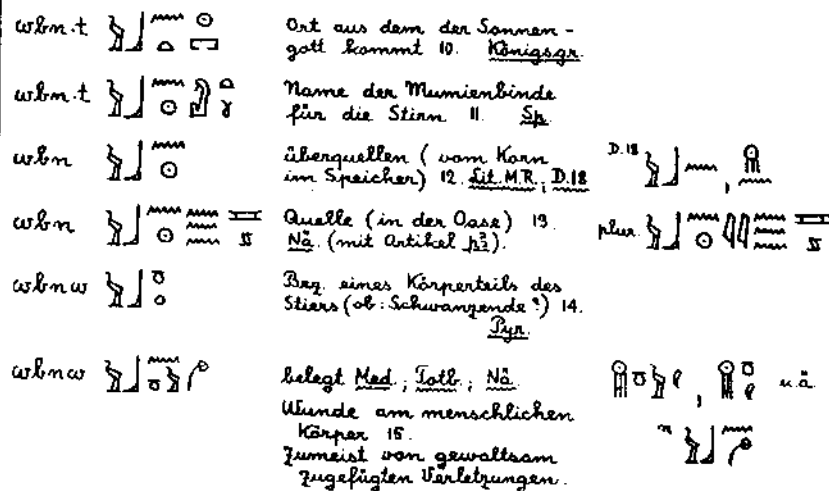 wbn.t Ort aus dem der Sonnen-
gott kommt 10. Königsgr.
wbn.t Name der Mumienbinde
für die Stirn 11. Sp.
wbn überquellen (vom Korn D.18
im Speicher) 12. Lit. M.R.; D.18
wbn Quelle (in der Oase) 13. plur.
Nä. (mit Artikel pꜣ).
wbnw Bez. eines Körperteils des
Stiers (ob: Schwanzende?) 14.
Pyr.
wbnw belegt Med.; Totb.; Nä. u.ä.
Wunde am menschlichen
Körper 15.
Zumeist von gewaltsam
zugefügten Verletzungen.